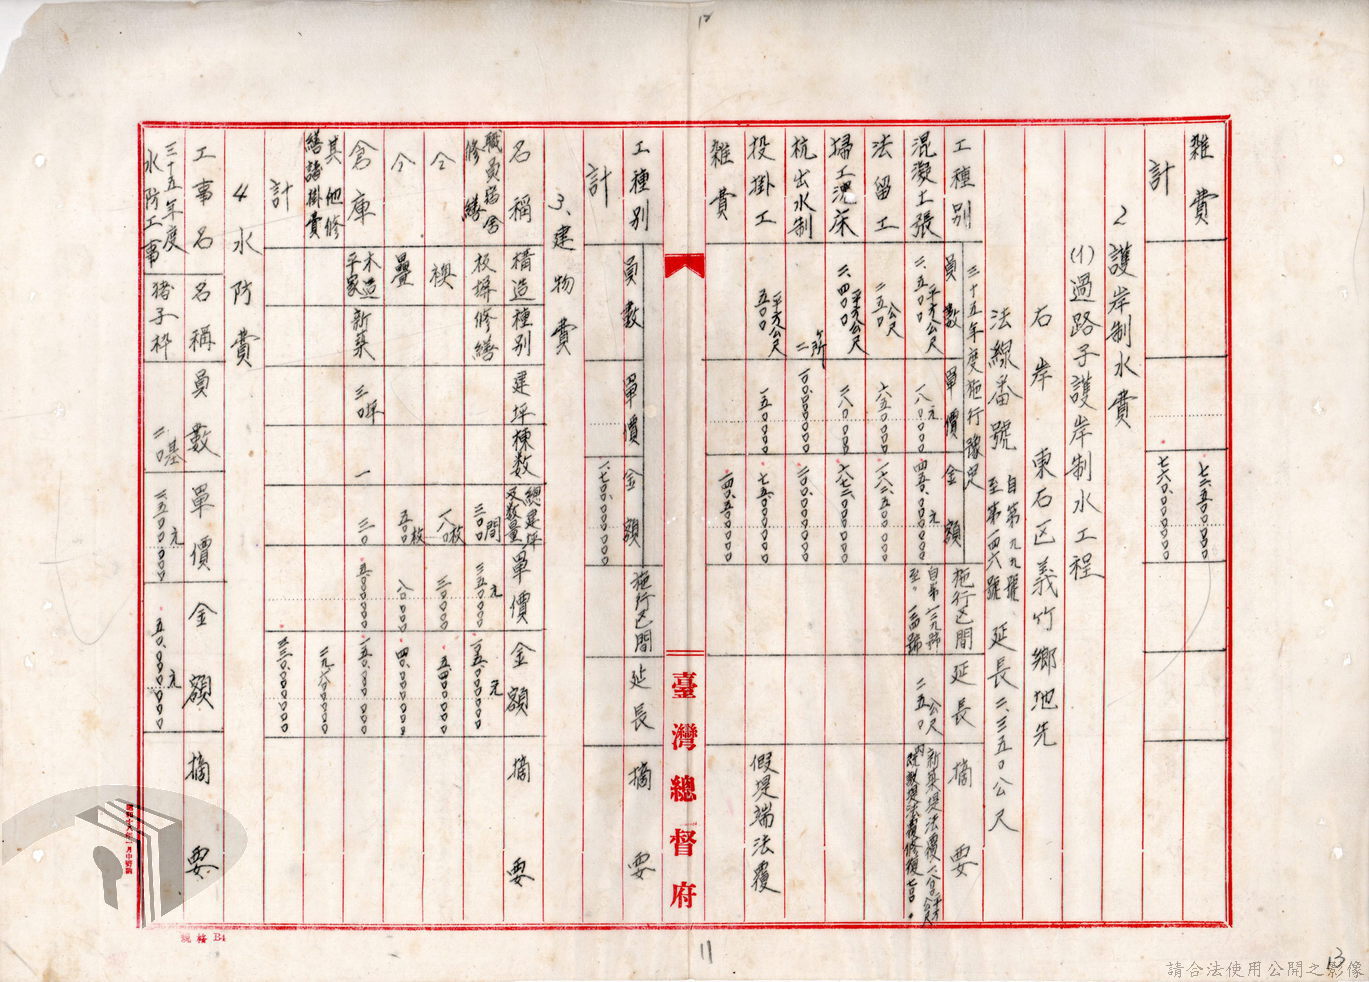 雑費　七二、五〇〇、〇〇
計　七六〇、〇〇〇、〇〇
2 護岸制水費
(1) 過路子護岸制水工程
右岸　東石区義竹鄉地先
法線番號　自第九九號　至第一四六號　延長二、三五〇公尺
三十五年度施行豫定
工種別　員數　單價　金額　施行区間　延長　摘要
混凝土張　二、五〇〇平方公尺　一八〇、〇〇元　四五〇、〇〇〇、〇〇元　自第一三九號　至〃一四四號　二五〇公尺　新築堤法覆一、八〇〇平方公尺
法留工　二五〇公尺　六五〇、〇〇　一六二、五〇〇、〇〇
掃工沈床　二、四〇〇平方公尺　二八〇、〇〇　六七二、〇〇〇、〇〇
杭出水制　二ヶ所　一〇〇、〇〇〇、〇〇　二〇〇、〇〇〇、〇〇
投掛工　五〇〇平方公尺　一五〇、〇〇　七五、〇〇〇、〇〇　假堤端法覆
雑費　一四〇、五〇〇、〇〇
臺灣總督府
工種別　員數　單價　金額　施行区間　延長　摘要
計　一、七〇〇、〇〇〇、〇〇
3、建物費
名稱　構造　種別　建坪　棟数　總建坪又数量　單價　金額　摘要
職員宿舍修繕　板塀　修繕　三〇〇間　三五〇、〇〇元　一〇五、〇〇〇、〇〇元
仝　襖　一八〇枚　三〇〇、〇〇　五四、〇〇〇、〇〇
仝　疊　五〇〇枚　八〇、〇〇　四〇、〇〇〇、〇〇
倉庫　木造平家　新築　三〇坪　一　三〇　五、〇〇〇、〇〇　一五〇、〇〇〇、〇〇
其他修繕諸掛費
計
4 水防費
工事名　名稱　員數　單價　金額　摘要
三十五年度水防工事　猪子枠　二〇基　二、五〇〇、〇〇元　五〇、〇〇〇、〇〇元
規格 B4
12
11
13
請合法使用公開之影像